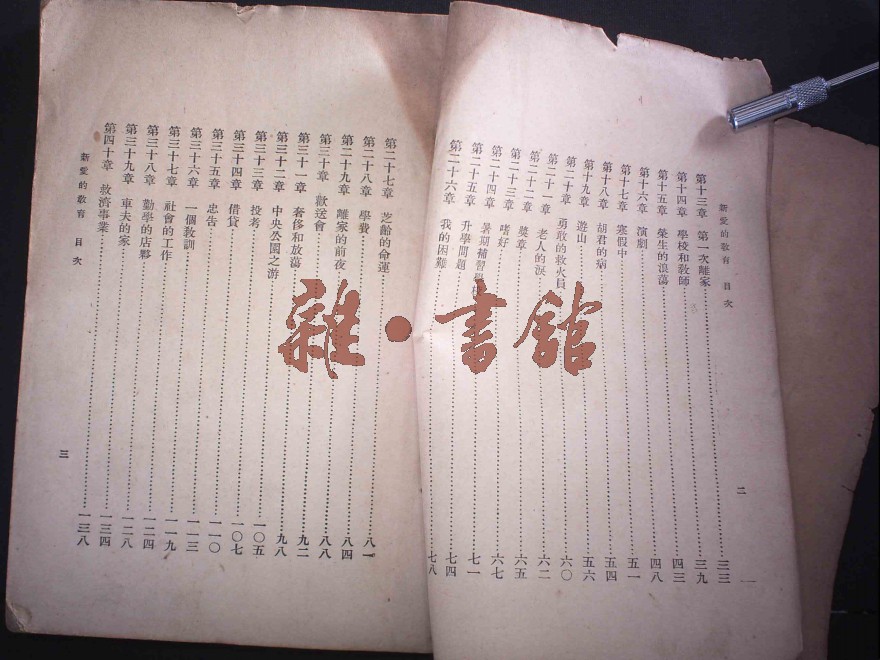 新愛的教育 目次 二
第十三章 第一次離家……三三
第十四章 學校和教師……三九
第十五章 榮生的浪蕩……四三
第十六章 演劇……四八
第十七章 寒假中……五一
第十八章 胡君的病……五四
第十九章 遊山……五六
第二十章 勇敢的救火員……六〇
第二十一章 老人的淚……六二
第二十二章 獎章……六五
第二十三章 嗜好……六七
第二十四章 暑期補習學校……七一
第二十五章 升學問題……七四
第二十六章 我的困難……七八
第二十七章 芝齡的命運……八一
第二十八章 學費……八四
第二十九章 離家的前夜……八八
第三十章 歡送會……九二
第三十一章 奢侈和放蕩……九八
第三十二章 中央公園之游……一〇五
第三十三章 投考……一〇七
第三十四章 借貸……一一〇
第三十五章 忠告……一一三
第三十六章 一個教訓……一一九
第三十七章 社會的工作……一二四
第三十八章 勤學的店夥……一二八
第三十九章 車夫的家……一三四
第四十章 救濟事業……一三八
新愛的教育 目次 三
雜·書館